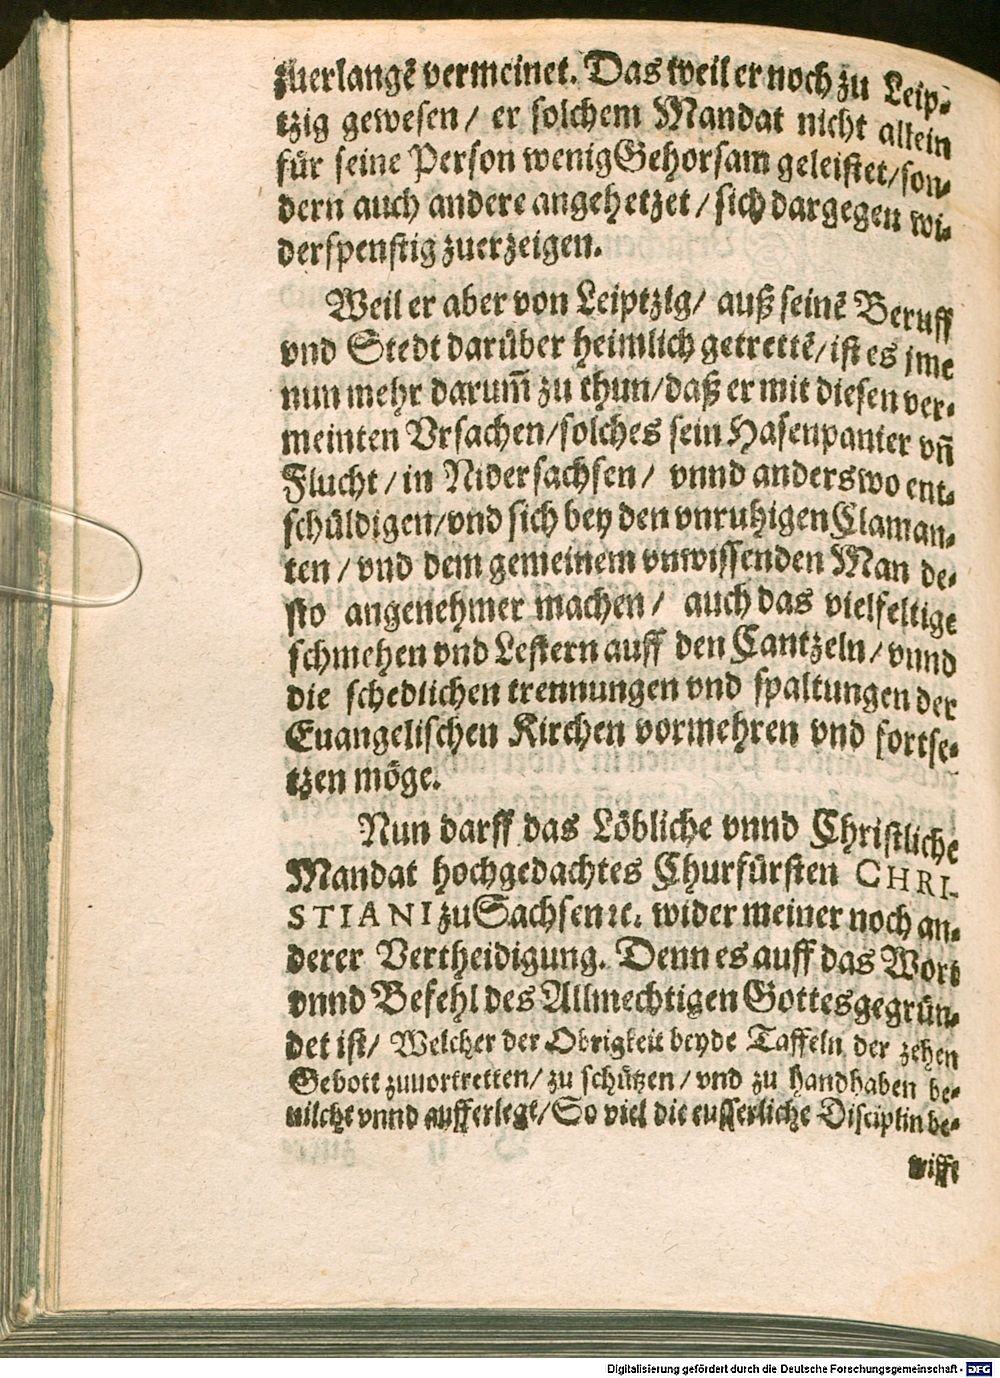 zuerlangē vermeinet. Das weil er noch zu Leip-
tzig gewesen/ er solchem Mandat nicht allein
für seine Person wenig Gehorsam geleistet/ son-
dern auch andere angehetzet/ sich dargegen wi-
derspenstig zuerzeigen.
Weil er aber von Leiptzig/ auß seinē Beruff
vnd Stedt darüber heimlich getrettē/ ist es jme
nun mehr darum̃ zu thun/ daß er mit diesen ver-
meinten Vrsachen/ solches sein Hasenpanier vn̄
Flucht/ in Nidersachsen/ vnnd anderswo ent-
schüldigen/ vnd sich bey den vnruhigen Claman-
ten/ vnd dem gemeinem vnwissenden Man de-
sto angenehmer machen/ auch das vielfeltige
schmehen vnd Lestern auff den Cantzeln/ vnnd
die schedlichen trennungen vnd spaltungen der
Euangelischen Kirchen vormehren vnd fortse-
tzen möge.
Nun darff das Löbliche vnnd Christliche
Mandat hochgedachtes Churfürsten CHRI-
STIANI zu Sachsen ꝛc. wider meiner noch an-
derer Vertheidigung. Denn es auff das Wort
vnnd Befehl des Allmechtigen Gottes gegrün-
det ist/ Welcher der Obrigkeit beyde Taffeln der zehen
Gebott zuuortretten/ zu schützen/ vnd zu handhaben be-
uilcht vnnd aufferlegt/ So viel die eusserliche Disciplin be-
wisst
Digitalisierung gefördert durch die Deutsche Forschungsgemeinschaft - DFG